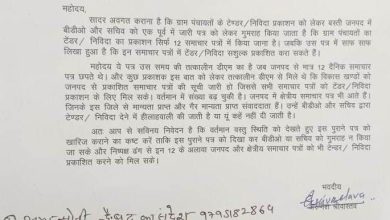 महोदय,
सादर अवगत कराना है कि ग्राम पंचायतों के टेण्डर/निविदा प्रकाशन को लेकर बस्ती जनपद में
बीडीओ और सचिव को एक पूर्व में जारी पत्र को लेकर गुमराह किया जाता है कि ग्राम पंचायतों का
टेंडर/ निविदा का प्रकाशन सिर्फ 12 समाचार पत्रों में किया जाना है। जबकि उस पत्र में साफ साफ
लिखा हुआ है कि इन समाचार पत्रों में टेंडर/निविदा सशुल्क प्रकाशित करा सकते है।
महोदय ये पत्र उस समय की तत्कालीन डीएम का है जब जनपद से मात्र 12 दैनिक समाचार
पत्र छपते थे। और कुछ प्रकाशक इस बात को लेकर तत्कालीन डीएम से मिले थे कि विकास खण्डों को
जनपद से प्रकाशित समाचार पत्रों की सूची जारी हो जिससे सभी समाचार पत्रों को टेंडर/निविदा
प्रकाशन के लिए मिल सके। वर्तमान में संख्या बढ़ चुकी है। जनपद में क्षेत्रीय समाचार पत्र भी आते हैं।
जिनके इस जिले में मान्यता प्राप्त और गैर मान्यता प्राप्त संवाददाता हैं। उन्हें बीडीओ और सचिव द्वारा
टेण्डर/ निविदा देने में हीलाहवाली की जाती है या यूं कहें नहीं दी जाती है।
अतः आप से सविनय निवेदन है कि वर्तमान वस्तु स्थिति को देखते हुए इस पुराने पत्र को
खारिज कराने का कष्ट करें ताकि इस पुराने पत्र को दिखा कर बीडीओ या सचिव को गुमराह न किया
जा सके और निष्पक्ष ढंग से इन 12 के अलावा जनपद और क्षेत्रीय समाचार पत्रों को भी टेन्डर/ निविदा
प्रकाशित करने को मिल सके।
भवदीय
श्रीवास्तव
9795182864